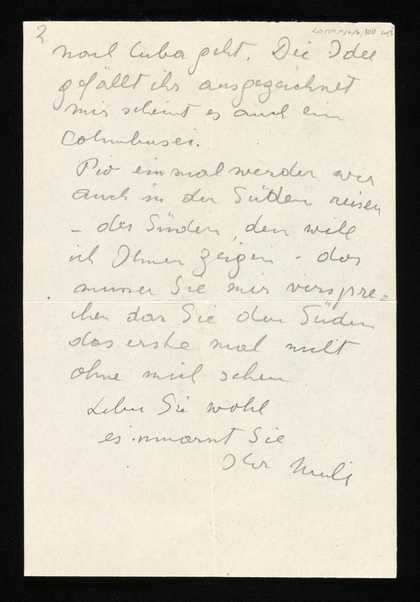 2
nach Cuba geht. Die Idee
gefällt ihr ausgezeichnet
mir scheint es auch ein
Columbusei.
einmal werden wir
auch in den Süden reisen
- den Süden, den will
ich Ihnen zeigen - das
müssen Sie mir verspre=
chen das Sie den Süden
das erste mal nicht
ohne mich sehen
Leben Sie wohl
es umarmt Sie
Ihr